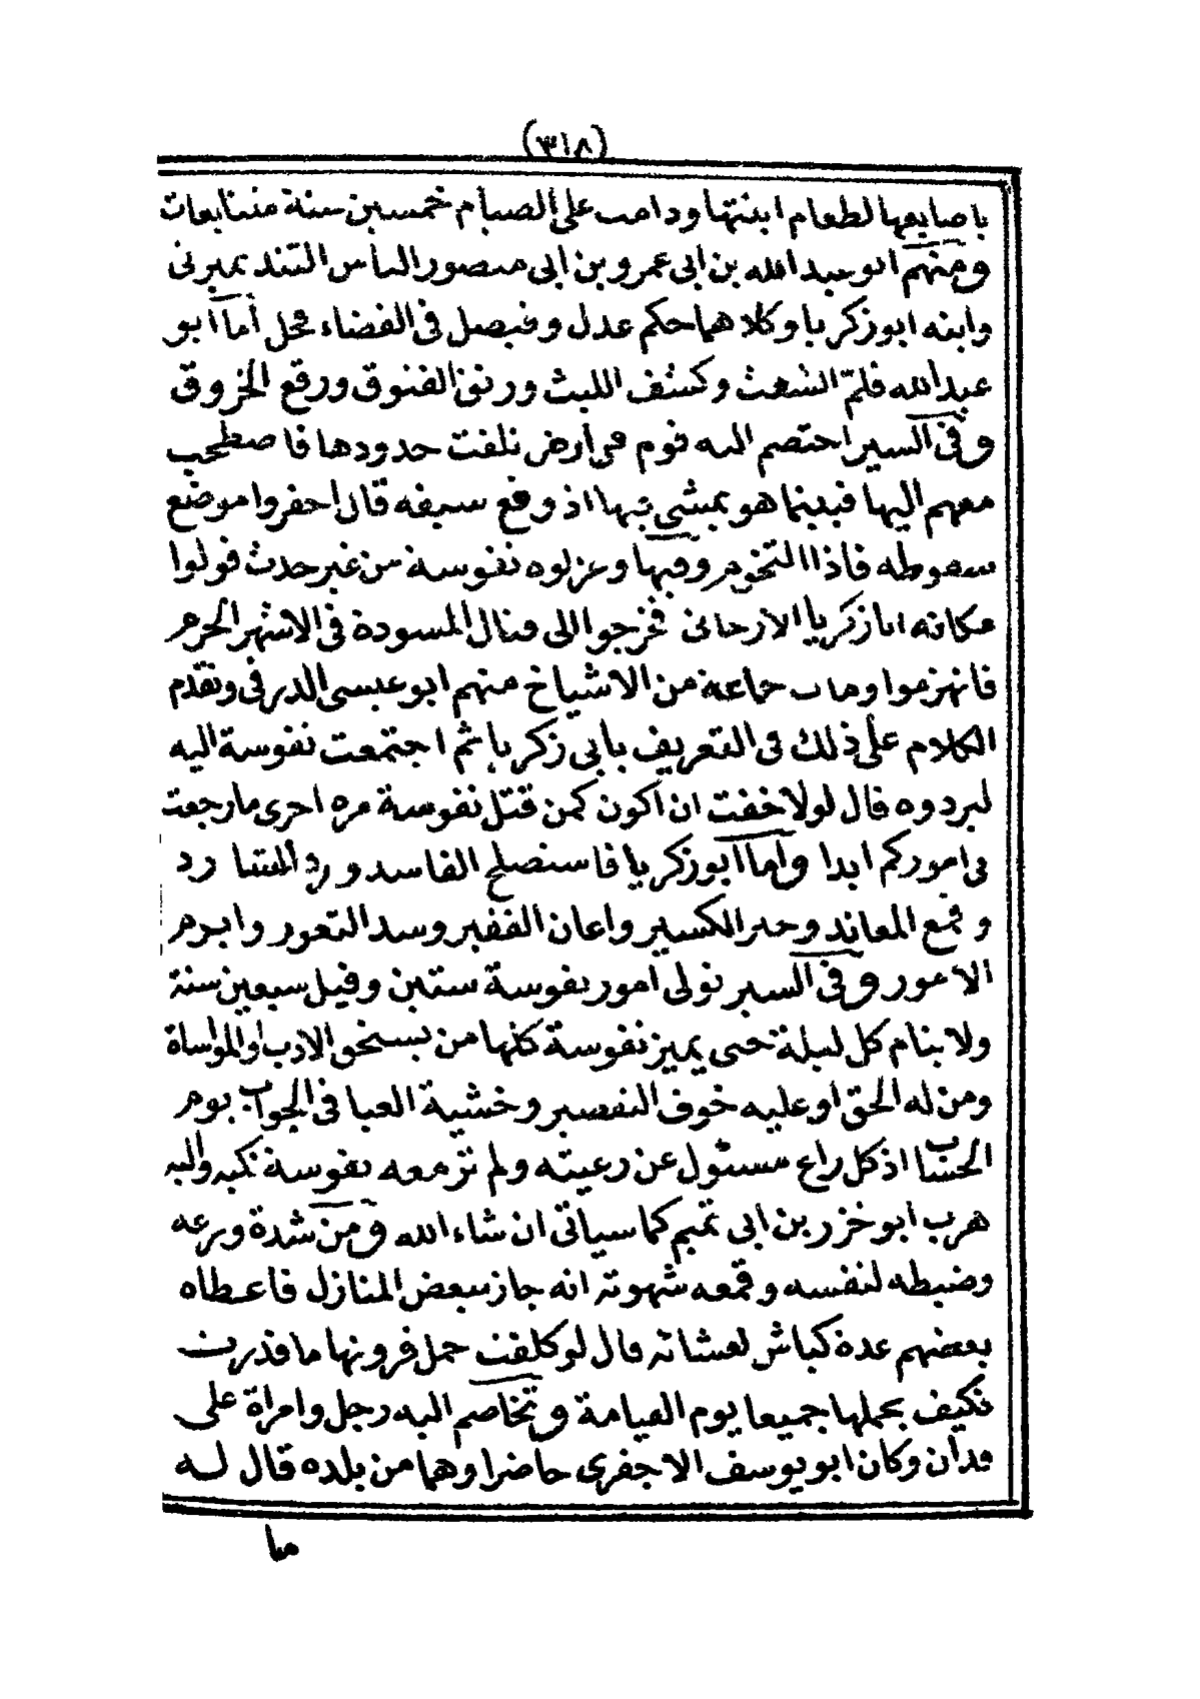 (٣١٨)
باصابعها لطعام ابنتها ودامت على الصيام خمسين سنة متتابعات
ومنهم ابو عبد الله بن ابى عمرو بن ابى منصور الياس التندميرتى
وابنه ابو زكريا وكلاهما حكم عدل وفيصل فى القضاء فحل أما ابو
عبد الله فلمّ الشعث وكشف اللبث ورتق الفتوق ورقع الخروق
وفى السير اختصم اليه قوم فى أرض تلفت حدودها فاصطحب
معهم اليها فبينما هو يمشى بها اذ وقع سيفه قال احفروا موضع
سقوطه فاذا التخوم وفيها وعزلوه نفوسة من غير حدث فولوا
مكانه ابا زكريا الارجانى فخرجوا الى قتال المسودة فى الاشهر الحرم
فانهزموا ومات جماعة من الاشياخ منهم ابو عيسى الدرفى وتقدم
الكلام على ذلك فى التعريف بابى زكريا ثم اجتمعت نفوسة اليه
ليردوه قال لولا خفت ان أكون كمن قتل نفوسة مرة اخرى ما رجعت
فى اموركم ابدا وأما أبو زكريا فاستصلح الفاسد ورد رد
وقمع المعاند وجبر الكسير واعان الفقير وسد الثغور وابرم
الامور وفى السير تولى امور نفوسة ستين وقيل سبعين سنة
ولا ينام كل ليلة حتى يميز نفوسة كلها من يستحق الادب والمواساة
ومن له الحق او عليه خوف التقصير وخشية العيا فى الجواب يوم
الحساب اذ كل راع مسئول عن رعيته ولم تزمعه نفوسة نكبة واليه
هرب ابو خزر بن ابى تميم كما سياتى ان شاء الله ومن شدة ورعه
وضبطه لنفسه وقمعه شهوته انه جاز ببعض المنازل فاعطاه
بعضهم عدة كباش لعشائه قال لو كلفت حمل قرونها ما قدرت
فكيف بحملها جميعا يوم القيامة وتخاصم اليه رجل وامراة على
فدان وكان ابو يوسف الاجفرى حاضرا وهما من بلده قال له
ما